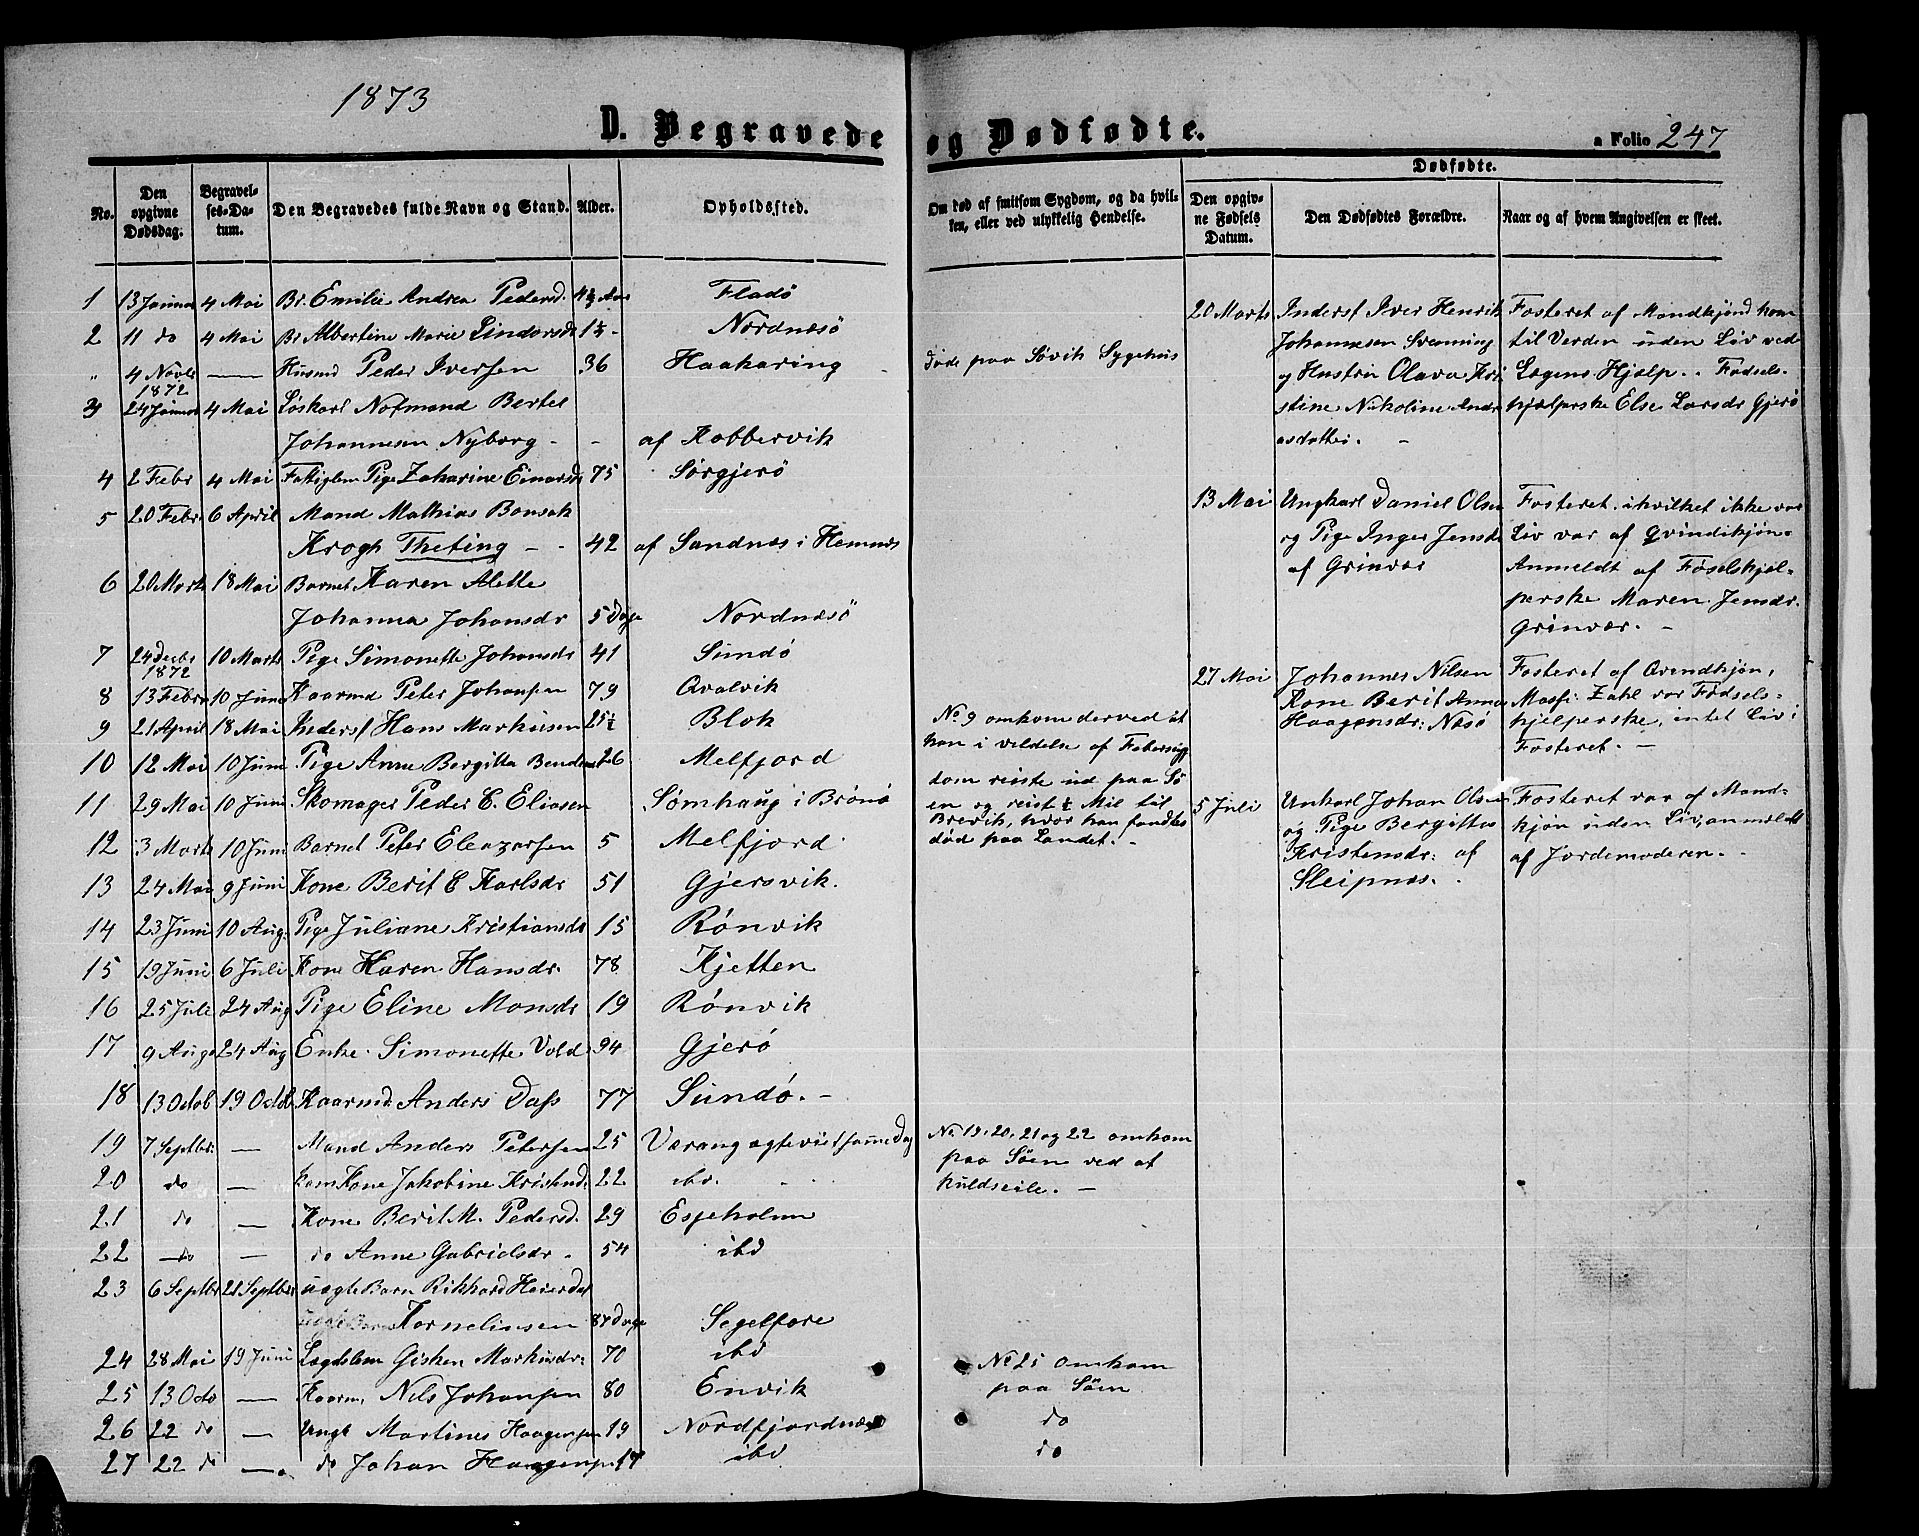 1873
D. Begravede og Dødfødte.
a Folio 247
No.
Den opgivne Dødsdag.
Begravelses-Datum.
Den Begravedes fulde Navn og Stand.
Alder.
Opholdssted.
Om død af smitsom Sygdom, og da hvilken, eller ved ulykkelig Hendelse.
Dødfødte.
Den opgivne Fødsels Datum.
Den Dødfødtes Forældre.
Naar og af hvem Angivelsen er skeet.
1 13 Januar 4 Mai Br. Emilie Andrea Pedersd. Fladø
2 11 do 4 Mai Br Albertine Marie 1½ - Nordnæsø
" 4 Novbr 1872 — Husmd Peder Iversen 36 Haakaring Døde paa Søvik Sygehus
3 24 Januar 4 Mai Løskarl Nofmand Bertel
Johannesen Nyborg - - af Kobbervik
4 2 Febr 4 Mai Fattiglem Pige Zakarine Einarsdr 75 Sørgjerø
5 20 Febr 6 April Mand Mathias Bonsak
Krogh Theting - - 42 af Sandnæs i Hemnæs
6 20 Marts 18 Mai Barnet Karen Alette
Johanna Johansdr 5 Dage Nordnæsø
7 24 Decbr 1872 10 Marts Pige Simonette Johansdr 41 Sundø
8 13 Febr 10 Juni Kaarmd Peter Johansen 79 Qvalvik
9 21 April 18 Mai Inderst Hans Markusen 25½ Blok
10 12 Mai 10 Juni Pige Anne Bergitta 26 Melfjord
11 29 Mai 10 Juni Skomager Peder C. Eliasen Sømhaug i Brønø
12 3 Marts 10 Juni Barnet Peter Eleazarsen 5 Melfjord
13 24 Mai 9 Juni Kone Berit C Karlsdr 51 Gjersvik.
14 23 Juni 10 Aug. Pige Juliane Kristiansdr 15 Rønvik
15 19 Juni 6 Juli Kone Karen Hansdr. 78 Kjetten
16 25 Juli 24 Aug Pige Eline Monsdr 19 Rønvik
17 9 Aug 24 Aug Enke. Simonette Vold 94 Gjerø
18 13 Octob 19 Octb Kaarmd Anders Dass 77 Sundø. -
19 7 Septbr. — Mand Anders Petersen 25 Værang ægteviet samme Dag
20 do — hans Kone Jakobine Kristensd. 22 ibd.
21 do — Kone Berit M. Pedersd. 29 Espeholmen
22 do — do Anne Gabrielsdr - 54 ibd
23 6 Septbr 21 Septbr uægte Barn Rikhard Heierdal
Kornelinsen 87 Dage Segelfore
24 28 Mai 19 Juni Lægdslem Gisken Markusdr. 70 ibd
25 13 Octo — Kaarm. Nils Johansen 80 Envik
26 22 do — Ungk Martines Haagensen 19 Nordfjordnæs
27 22 do — do Johan Haagensen 17 ibd
No 9 omkom derved at
han i vildelse af Febersyg
dom reiste ud paa Sø
en og reist ½ Mil til
Brevik, hvor han fandtes
død paa Landet. -
No 19, 20, 21 og 22 omkom
paa Søen ved at
kuldseile. -
No 25 omkom
paa Søen
do
do
20 Marts
Inderst Iver Henrik
Johannesen Svenning
og Hustru Olava Kri
stine Nikoline Andre
asdatter. -
Fosteret af Mandkjønd kom
til Verden uden Liv ved
Lægens Hjælp. . Fødsels-
hjælperske Else Larsdr Gjerø
13 Mai
Ungkarl Daniel Olsen
og Pige Inger Jensdr
af Grinvær
Fosteret, i hvilket ikke var
Liv var af Qvindekjøn.
Anmeldt af Føselshjæl-
perske Maren Jensdr.
Grinvær. -
27 Mai
Johannes Nilsen
Kone Berit Anna
Haagensdr: Næsø
Fosteret af Qvendkjøn,
Massi Zahl var Fødsels-
hjelperske, intet Liv i
Fosteret. -
5 Juli
Unkarl Johan Olsen
og Pige Bergitta
Kristensdr. af
Sleipnæs.
Fosteret var af Mand-
kjøn uden Liv, anmeldt
af Jordemoderen. -